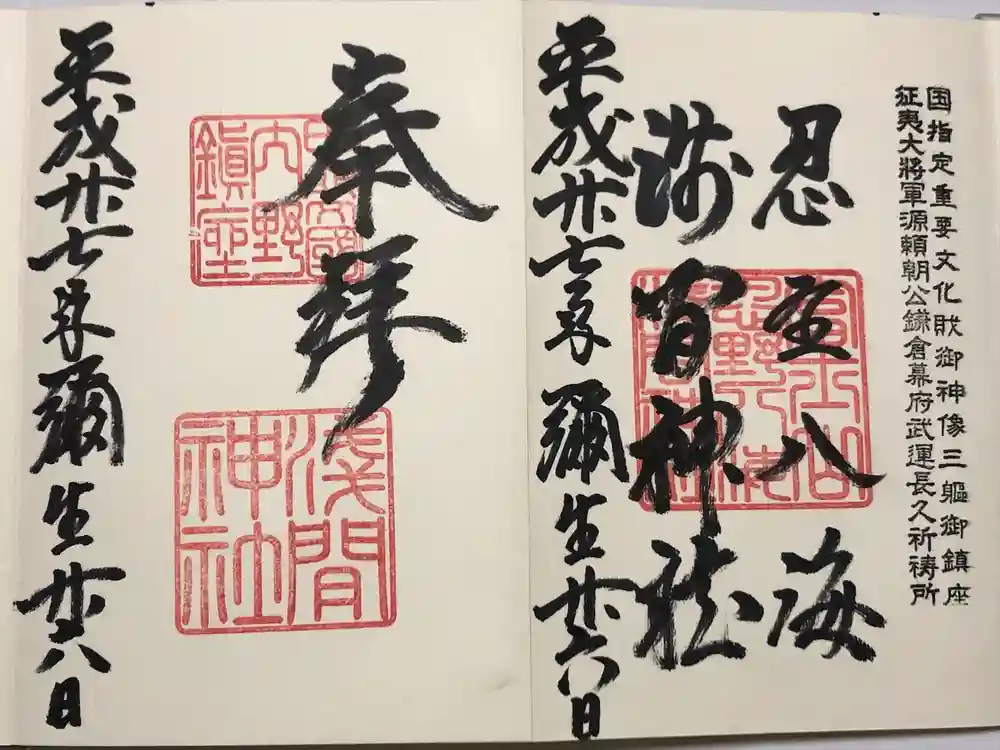 国指定重要文化財御神像三軀御鎮座
征夷大將軍源頼朝公鎌倉幕府武運長久祈祷所
忍野八海
淺間神社
平成廿七年彌生廿八日
奉拜
内野
鎮座
淺間
神社
平成廿七年彌生廿八日